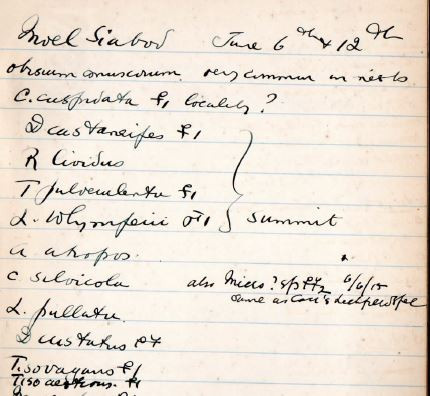 Moel Siabod June 6th & 12th
obisium muscorum. very common in nests
C. cuspidata ♀1 locality?
D castaneipes ♀1
R lividus
T pulverulenta ♀1
L. Whymperii ♂1 } summit
A atropos.
C silvicola also Micro? sp ♀♀2 6/6/15
same as
L. pullata.
D cristatus ♂♀
T. so vagans ♀1
T. iso aestivus. ♀1